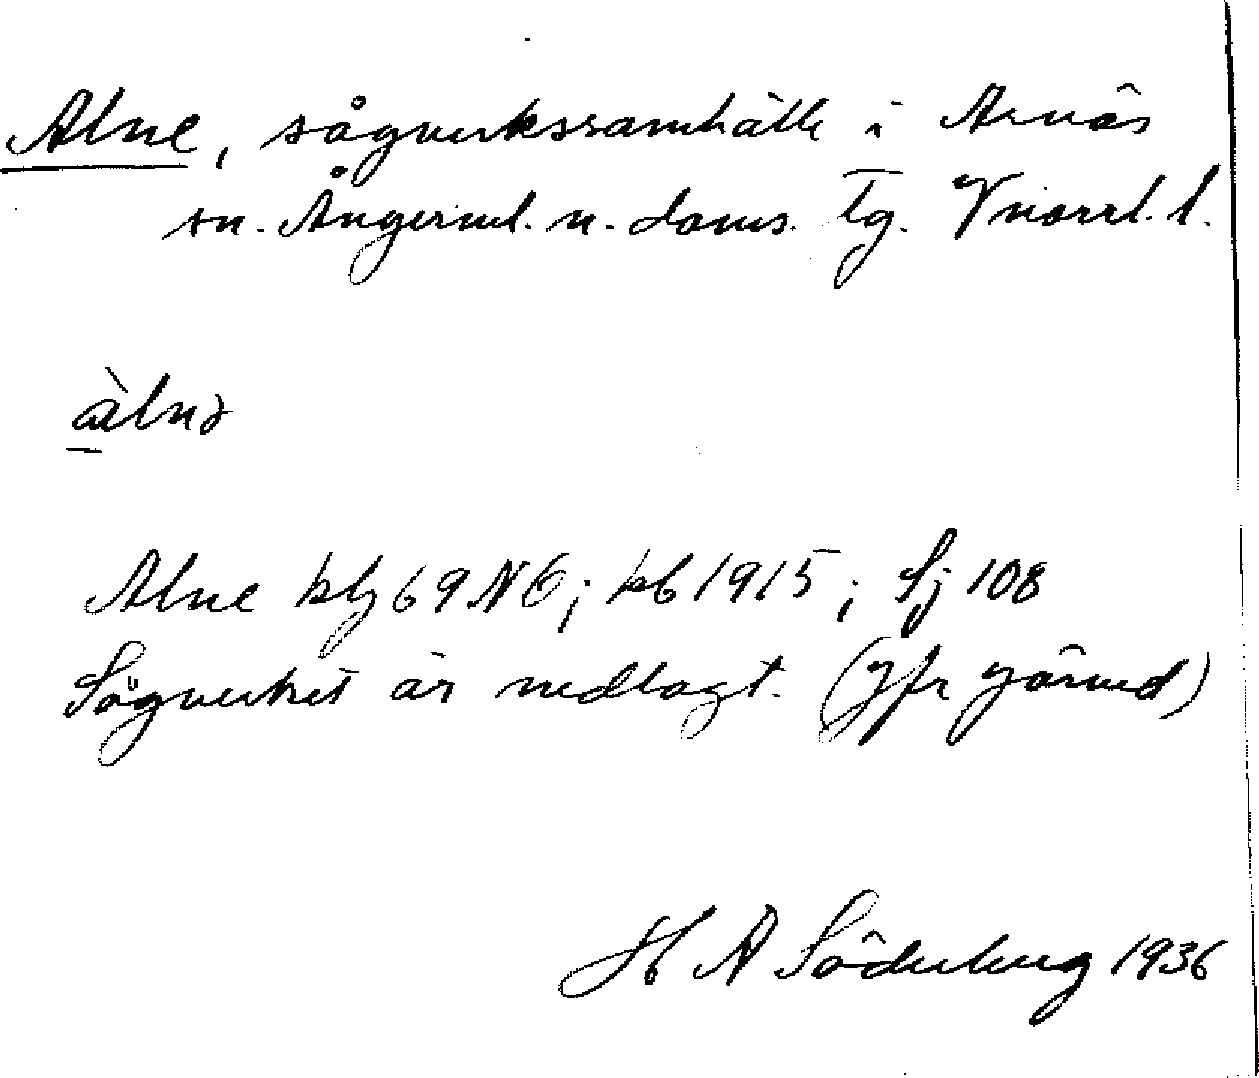 Alne, sågverkssamhälle i Arnäs
sn. Ångerml. n. doms. Tg. Vnorrl. l.
àlnə
Alne kbl 69 NÖ; kb 1915; Sj 108
Sågverket är nedlagt. (Jfr Järved)
H A Söderberg 1936